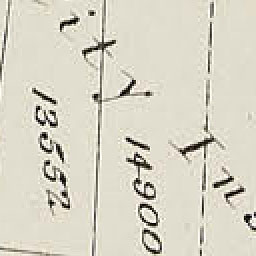 ity
13552
14900
In